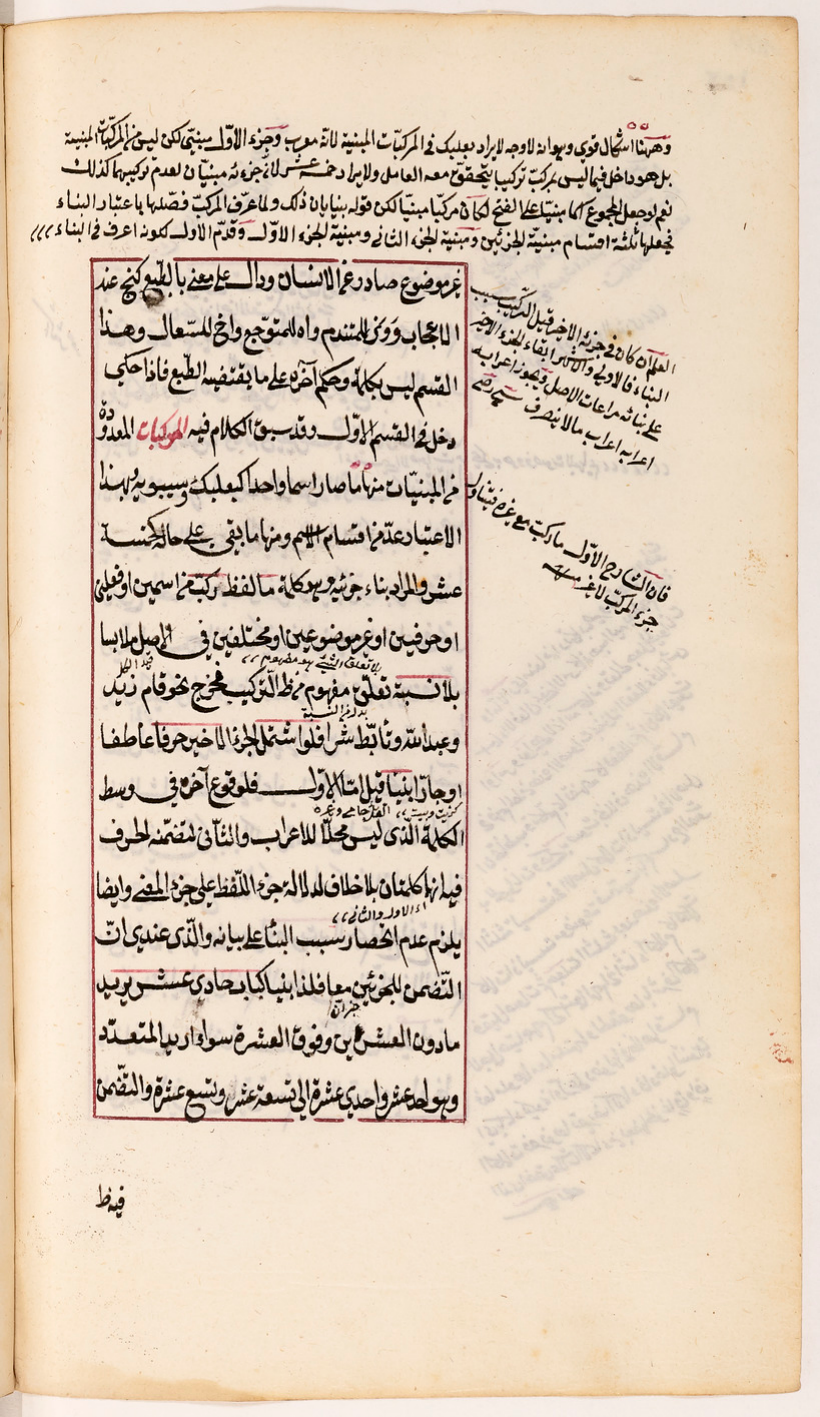 وههنا اشكال قوي وهو انه لا وجه لايراد بعلبك في المركبات المبنية لانه معرب وجزء الاول مبني لكن ليس من المركبات المبنية
بل هو داخل فيما ليس بمركب تركيبا يتحقق معه العامل ولا يراد خمسة عشر لان جزءئه مبنيان لعدم تركيبهما كذلك
نعم لو جعل المجموع اسما مبنيا على الفتح لكان مركبا مبنيا لكن قوله بنيا يابى ذلك ولما عرف المركب فصلها باعتبار البناء
فجعلها ثلثة اقسام مبنية الجزئين ومبنية الجزء الثاني ومبنية الجزء الاول وقدم الاول لكونه اعرف في البناء
غير موضوع صادر عن الانسان ودال على معنى بالطبع كنخ عند
الاعجاب ووى للمتندم واه للمتوجع واخ للسعال وهذا
القسم ليس بكلمة وحكم آخره على ما يقتضيه الطبع فاذا حكي
دخل في القسم الاول وقد سبق الكلام فيه المركبات المعدودة
من المبنيات منها ما صار اسما واحدا كبعلبك وسيبويه وبهذا
الاعتبار عد من اقسام الاسم ومنها ما بقي على حاله كخمسة
عشر والمراد بناء جزئيه وهو كلمة ما لفظ ركب من اسمين او فعلين
او حرفين او غير موضوعين او مختلفين في الاصل ملابسا
لا تعلق الشيء بمفهوم
بلا نسبة تعلق مفهوم من ظ التركيب فخرج نحو قام زيد
بدل من النسبة
وعبد الله وتأبط شرا فلو اشتمل الجزء الاخير حرفا عاطفا
او جارا بنيا قيل اما الاول فلوقوع آخره في وسط
الكلمة الذى ليس محلا للاعراب والثاني لتضمنه الحرف
فيه انهما كلمتان بلا خلاف لدلالة جزء اللفظ على جزء المعنى وايضا
اى الاول والثاني
يلزم عدم انحصار سبب البناء على بيانه والذى عندى ان
التضمن للجزئين معا فلذا بنيا كباب حادى عشر يريد
ما دون العشرين وفوق العشرة سواء اريد المتعدد
وهو احد عشر واحدى عشرة الى تسعة عشر وتسع عشرة والتضمن
فيه ظ
العلمان كان في جزئه الاخير قبل التركيب سبب
البناء فالاولى والاشهر ابقاء الجزء الاخير
على بنائه مراعات الاصل ويجوز اعرابه
اعرابه اعراب ما لا ينصرف شيخ رضى
فان الشارح الاول ما ركب مع غيره فيتناول
جزء المركب لا غير منه